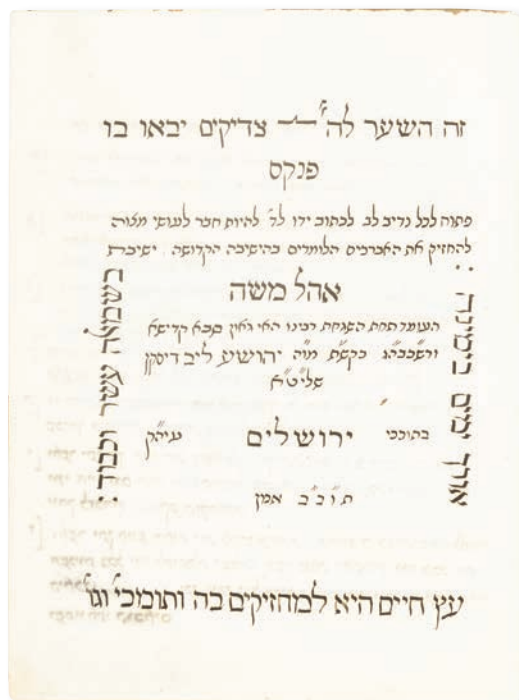 זה השער לה' צדיקים יבאו בו
פנקס
פתוח לכל נדיב לב לכתוב ידו לד' להיות חבר לעושי מצוה
להחזיק את האברכים הלומדים בהישיבה הקדושה ישיבת
אהל משה
העומד תחת השגחת רבינו האי גאון סבא קדישא
ורשכבה״ג כקש״ת מו״ה יהושע ליב דיסקין
שליט״א
בתוככי ירושלים עיה״ק
ת ו ב״ ב אמן
אורך ימים בימינה :
בשמאלה עשר וכבוד :
עץ חיים היא למחזיקים בה ותומכי' וגו'